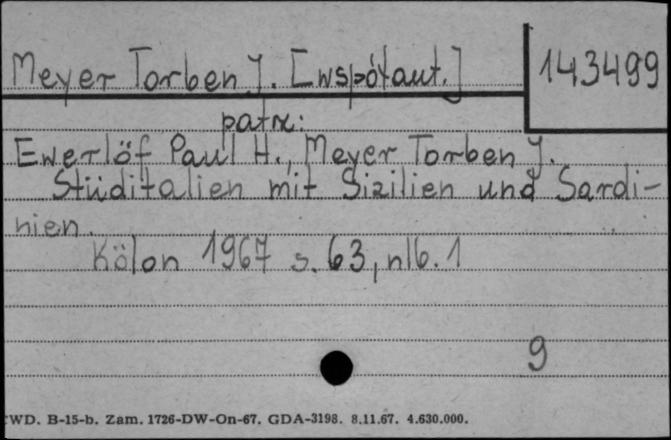 Meyer Torben J. [współaut.]
143499
patrz:
Ewerlöf Paul H., Meyer Torben J.
Stüditalien mit Sizilien und Sardi-
nien.
Kölon 1967 s. 63, nlb. 1
9
WD. B-15-b. Zam. 1726-DW-On-67. GDA-3198. 8.11.67. 4.630.000.